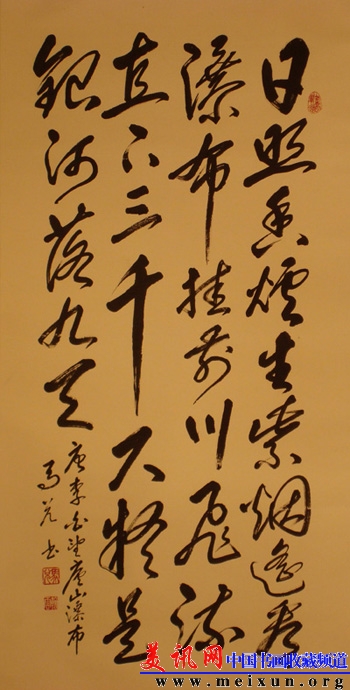 日照香炉生紫烟遥看
瀑布挂前川飞流
直下三千尺疑是
银河落九天
唐李白望庐山瀑布
马 书
美讯网 中国书画收藏频道
www.meixun.org